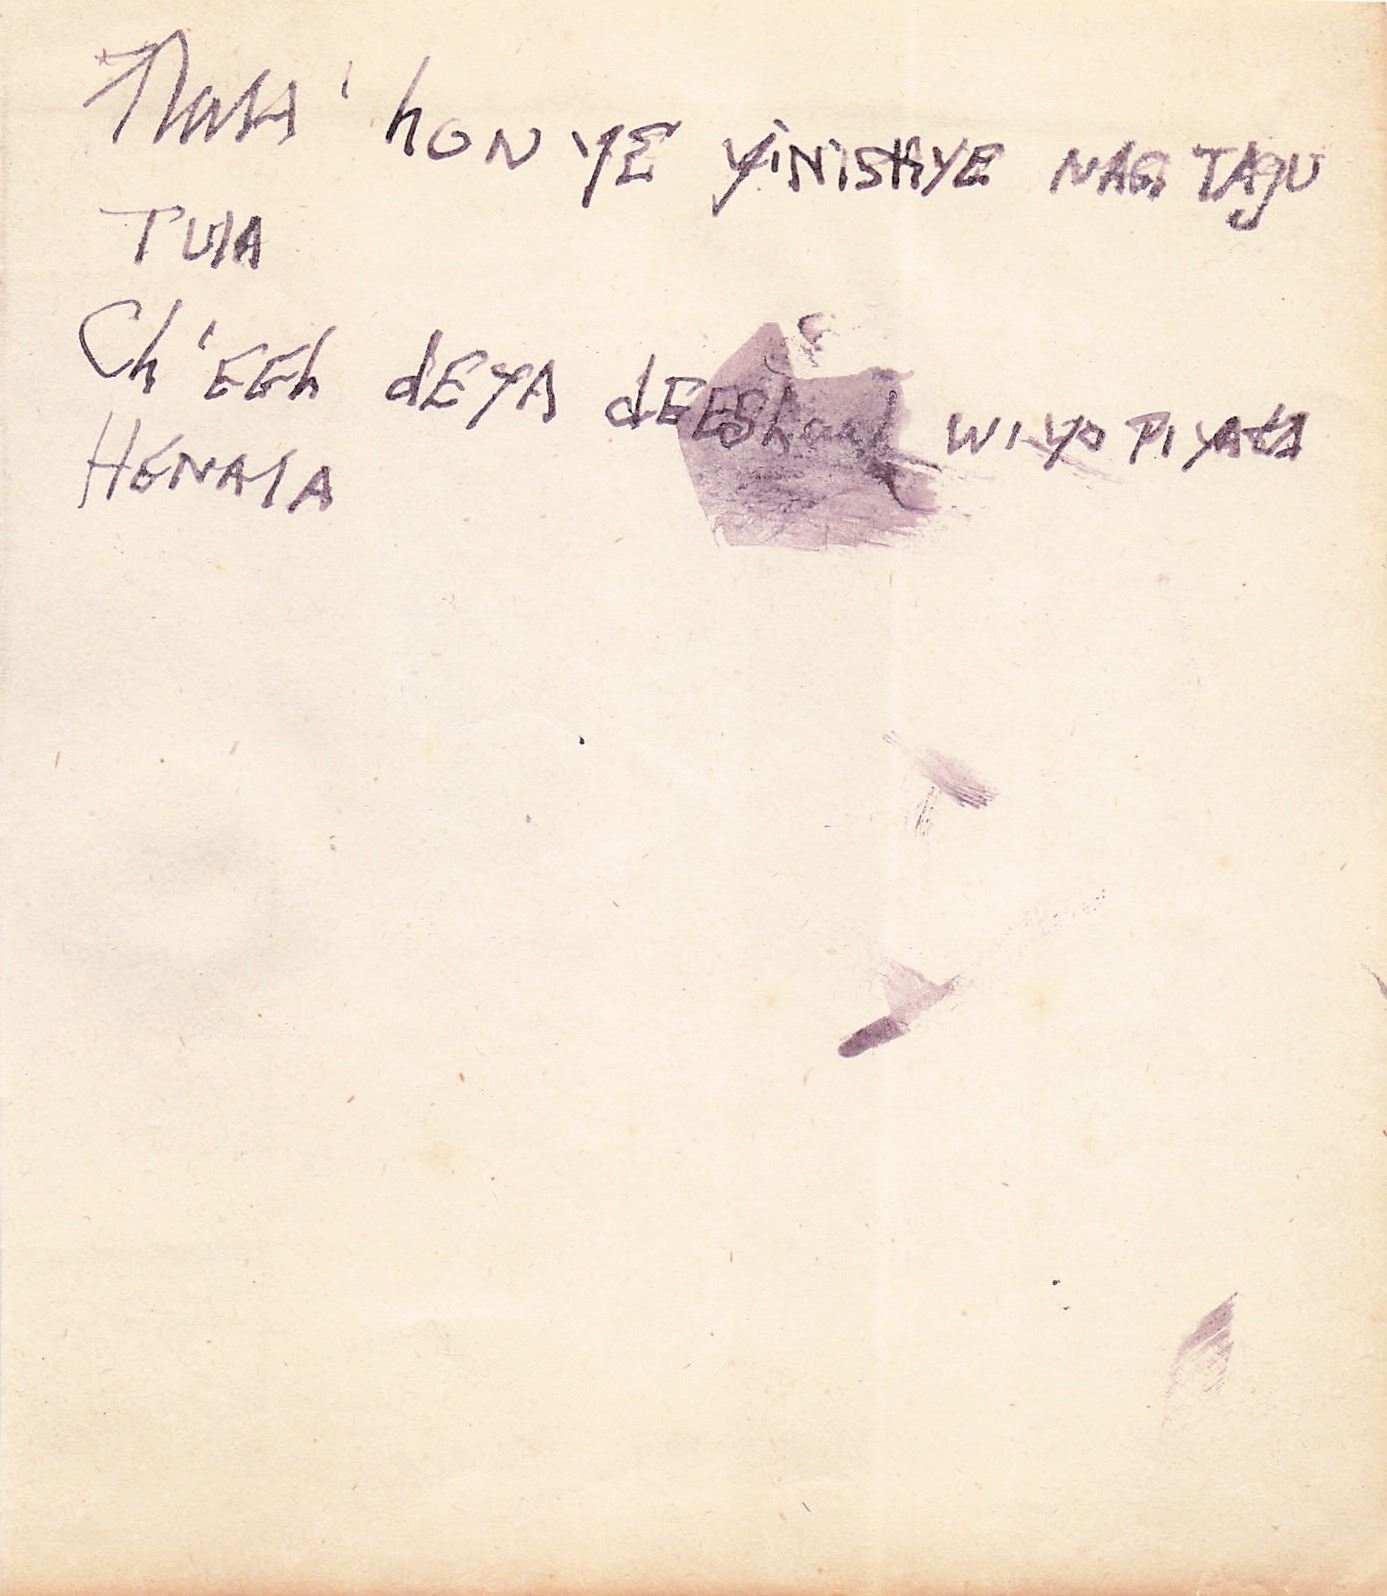 hON YE YiNiSHYE NAGi TAgU
TUlA
Ch'EEh dEYA dEEShaal WI-YO PI YAtA
HENAlA